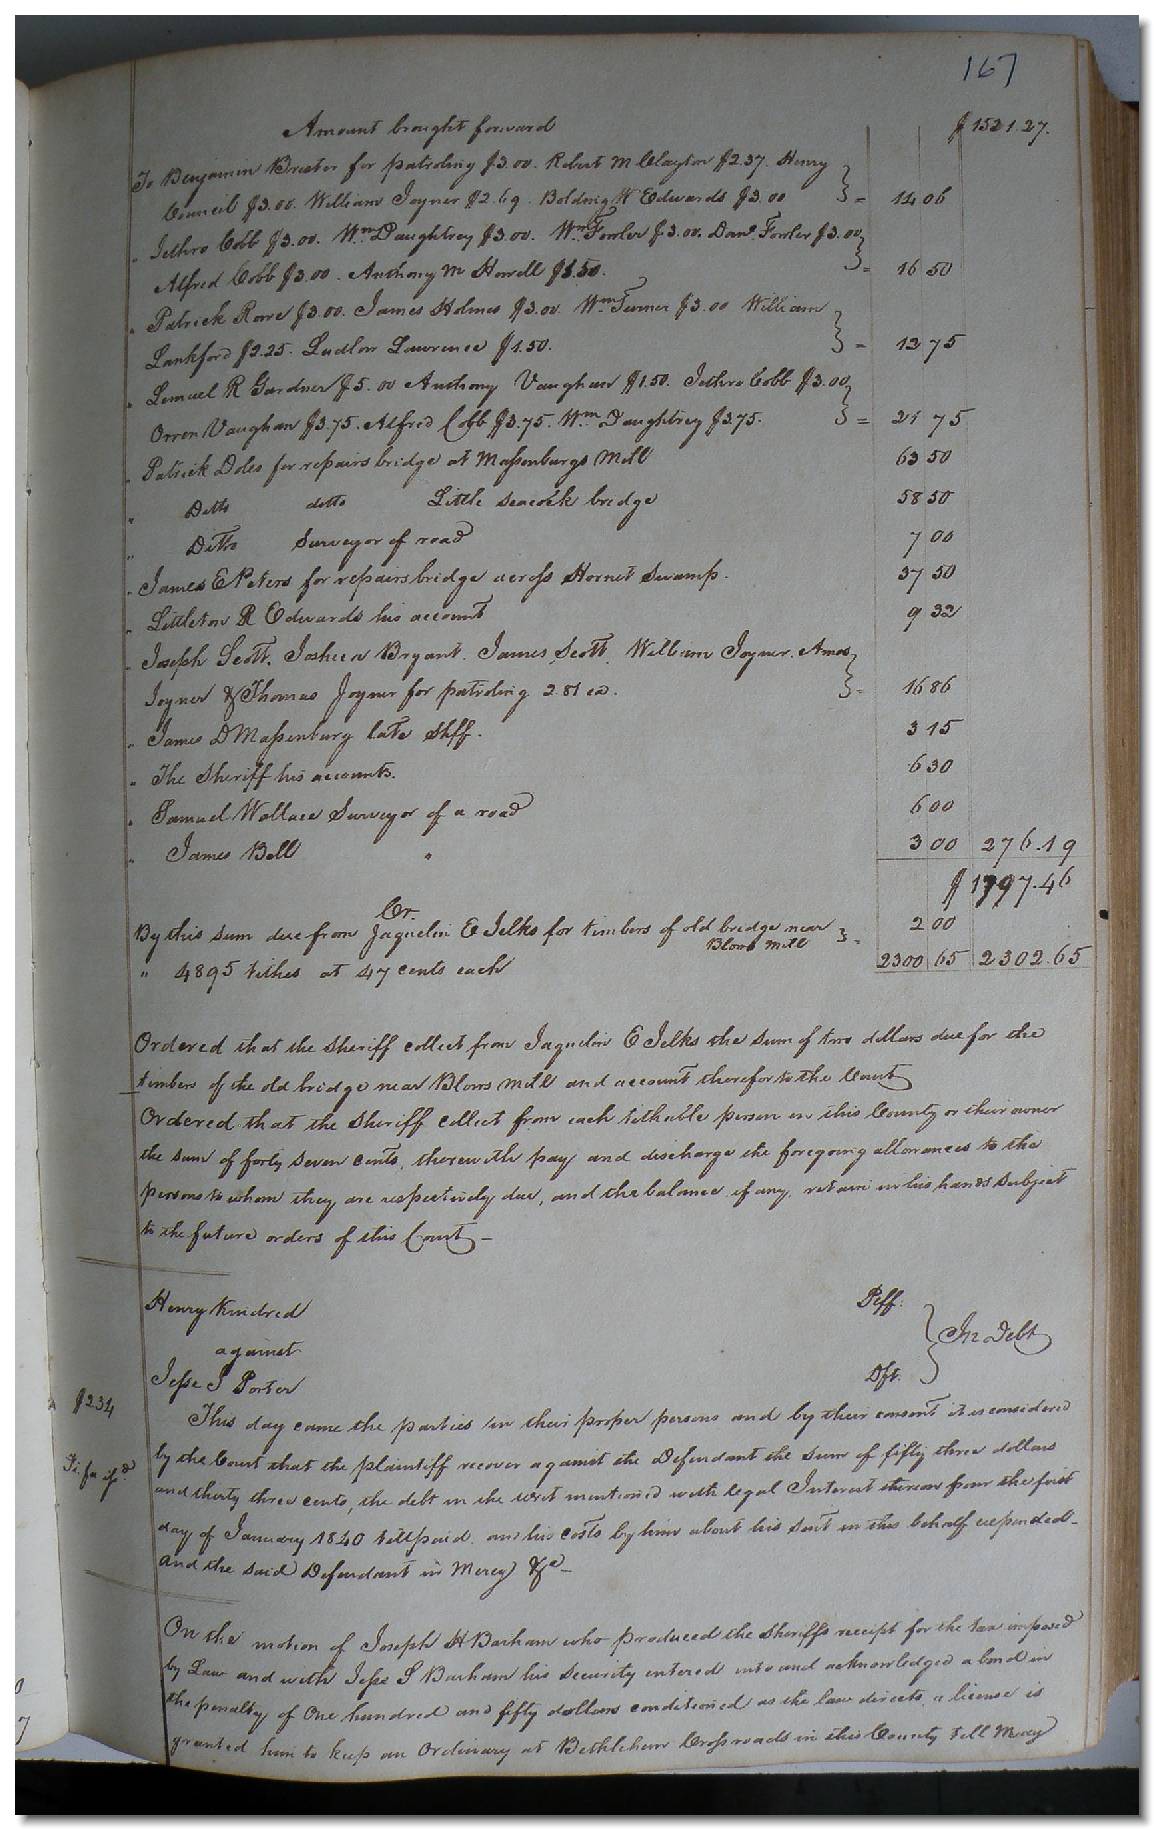 167
Amount brought forward $1521.27.
To Benjamin Brister for patroling $3.00. Robert M Clayton $2.37. Henry
Council $3.00. William Joyner $2.69. Bolding H Edwards $3.00 = 14 06
" Jethro Cobb $3.00. Wm Daughtrey $3.00. Wm Fowler $3.00. Danl Fowler $3.00
Alfred Cobb $3.00. Anthony M Howell $1.50. = 16 50
" Patrick Rowe $3.00. James Holmes $3.00. Wm Turner $3.00 William
Lankford $2.25. Ludlow Lawrence $1.50. = 12 75
" Lemuel R Gardner $5.00 Anthony Vaughan $1.50. Jethro Cobb $3.00
Orren Vaughan $3.75. Alfred Cobb $3.75. Wm Daughtrey $3.75. = 21 75
" Patrick Doles for repairs bridge at Massenburgs Mill 63 50
" Ditto ditto Little Seacock bridge 58 50
" Ditto Surveyor of road 7 00
" James E Peters for repairs bridge across Hornet Swamp. 37 50
" Littleton R Edwards his account 9 32
" Joseph Scott. Joshua Bryant. James Scott. William Joyner. Amos
Joyner & Thomas Joyner for patroling 2.81 ea. = 16 86
" James D Massenburg late Shff. 3 15
" The Sheriff his accounts. 6 30
" Samuel Wallace Surveyor of a road 6 00
" James Bell " 3 00 276.19
$1797.46
Cr.
By this sum due from Jaquelin E Jelks for timbers of old bridge near
Blows Mill = 2 00
" 4895 tithes at 47 cents each 2300 65 2302.65
Ordered that the Sheriff collect from Jaquelin E Jelks the sum of two dollars due for the
timbers of the old bridge near Blows mill and account therefor to the Court
Ordered that the Sheriff collect from each tithable person in this County or their owner
the sum of forty seven cents, therewith pay and discharge the foregoing allowances to the
persons to whom they are respectively due, and the balance, if any, retain in his hands subject
to the future orders of this Court –
Henry Kindred Plff.
against In Debt
Jesse J Porter Dft.
$234
This day came the parties in their proper persons and by their consent it is considered
Fi. fa isd
by the Court that the plaintiff recover against the Defendant the sum of fifty three dollars
and thirty three cents, the debt in the writ mentioned with legal Interest thereon from the first
day of January 1840 till paid. and his costs by him about his suit in this behalf expended –
and the said Defendant in Mercy &c –
On the motion of Joseph H Barham who produced the Sheriffs receipt for the tax imposed
by Law and with Jesse S Barham his security entered into and acknowledged a bond in
the penalty of One hundred and fifty dollars conditioned as the law directs, a license is
granted him to keep an Ordinary at Bethlehem Cross roads in this County till May